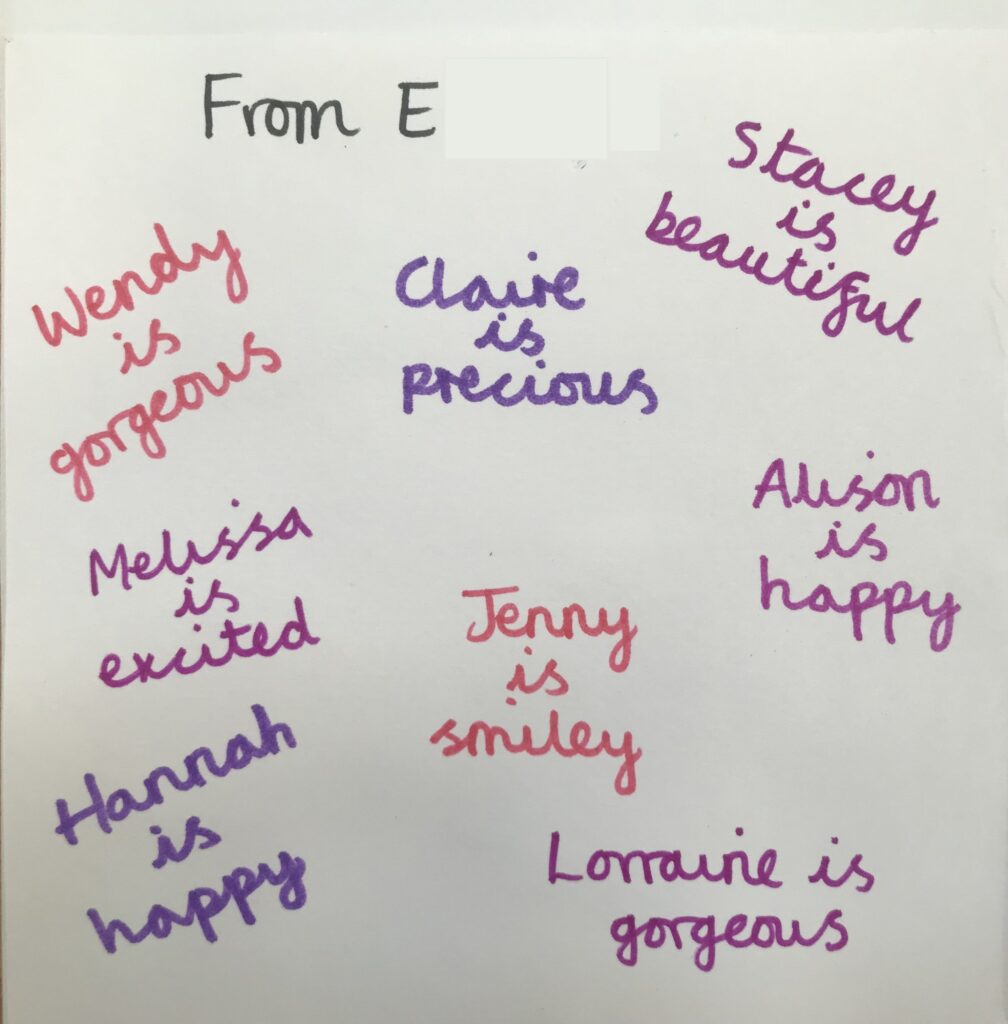 From E
Stacey
is
beautiful
Wendy
is
gorgeous
Claire
is
precious
Alison
is
happy
Melissa
is
excited
Jenny
is
smiley
Hannah
is
happy
Lorraine is
gorgeous